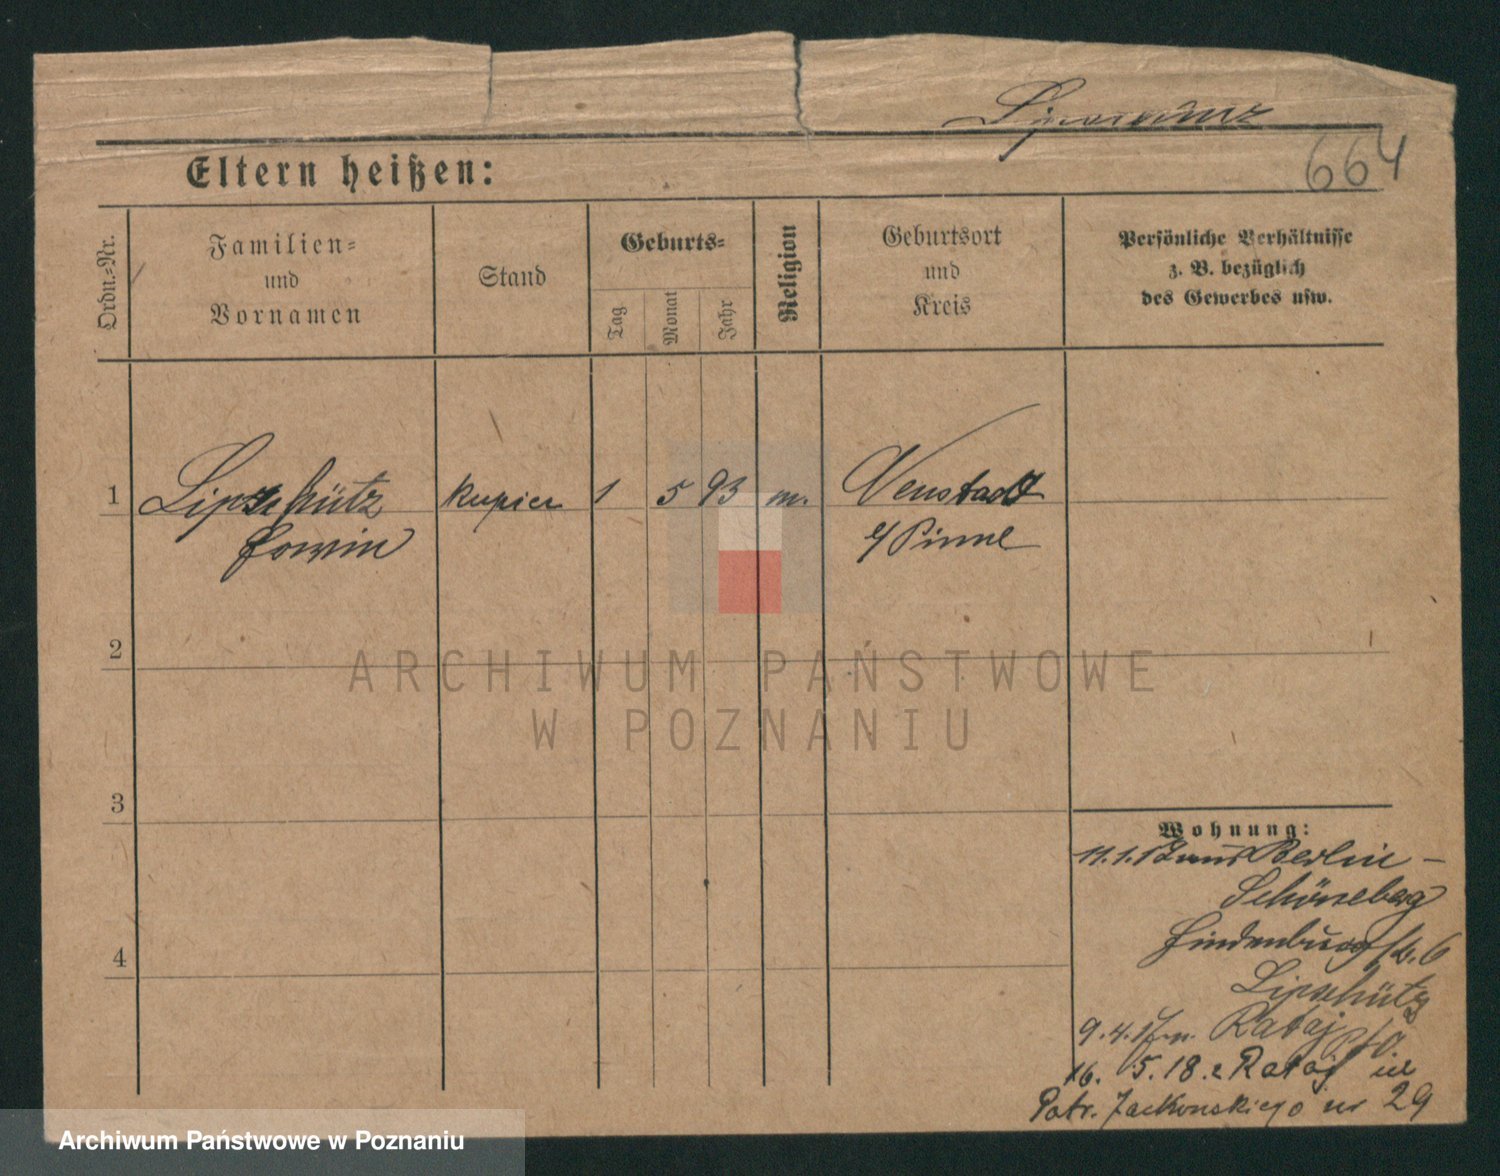 664
Eltern heißen:
Ordn.-Nr.
Familien-
und
Vornamen
Stand
Geburts-
Tag
Monat
Jahr
Religion
Geburtsort
und
Kreis
Persönliche Verhältnisse
z. B. bezüglich
des Gewerbes usw.
1 Lipschütz kupiec 1 5 93 m. Neustadt
Erwin b/Pinne
2
3
4
Wohnung:
11.1.17 aus Berlin -
Schöneberg
Hindenburgstr. 6
Lipschütz
9.4.17 n. Rataj
16. 5.18. z Rataj ul
Patr. Jackowskiego nr 29
ARCHIWUM PAŃSTWOWE
W POZNANIU
Archiwum Państwowe w Poznaniu